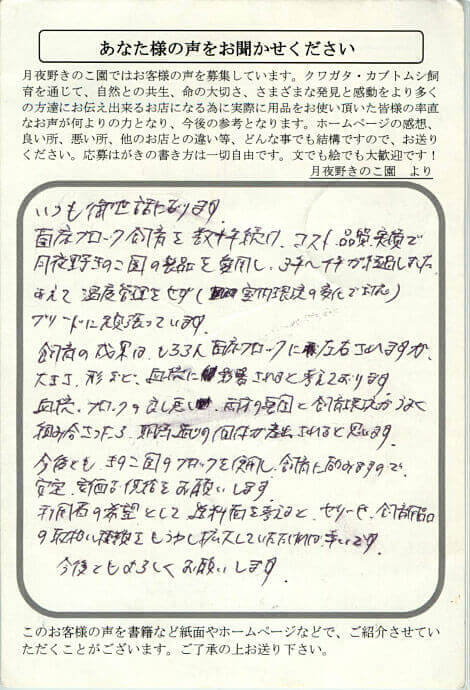 あなた様の声をお聞かせください
月夜野きのこ園ではお客様の声を募集しています。クワガタ・カブトムシ飼
育を通じて、自然との共生、命の大切さ、さまざまな発見と感動をより多く
の方達にお伝え出来るお店になる為に実際に用品をお使い頂いた皆様の率直
なお声が何よりの力となり、今後の参考となります。ホームページの感想、
良い所、悪い所、他のお店との違い等、どんな事でも結構ですので、お送り
ください。応募はがきの書き方は一切自由です。文でも絵でも大歓迎です！
月夜野きのこ園　より
いつも御世話になります。
菌床ブロック飼育を数年続け、コスト、品質、実績で
月夜野きのこ園の製品を愛用し、
あえて温度管理をせず（室内環境の変化で対応）
ブリードに頑張っています。
飼育の成果は、もちろん菌床ブロックに左右されますが、
大きさ、形など、血統に影響されると考えております。
血統、ブロックの良し悪し、飼育環境がうまく
組み合さったら、期待通りの個体が産出されると思います。
今後とも、きのこ園のブロックを使用し、飼育に励みますので、
安定、安価な供給をお願いします。
利用者の希望として、送料面を考えると、ゼリーや、飼育用品
の取扱い種類をもう少し拡大していただければ幸いです。
今後ともよろしくお願いします。
このお客様の声を書籍など紙面やホームページなどで、ご紹介させてい
ただくことがございます。ご了承の上お送り下さい。